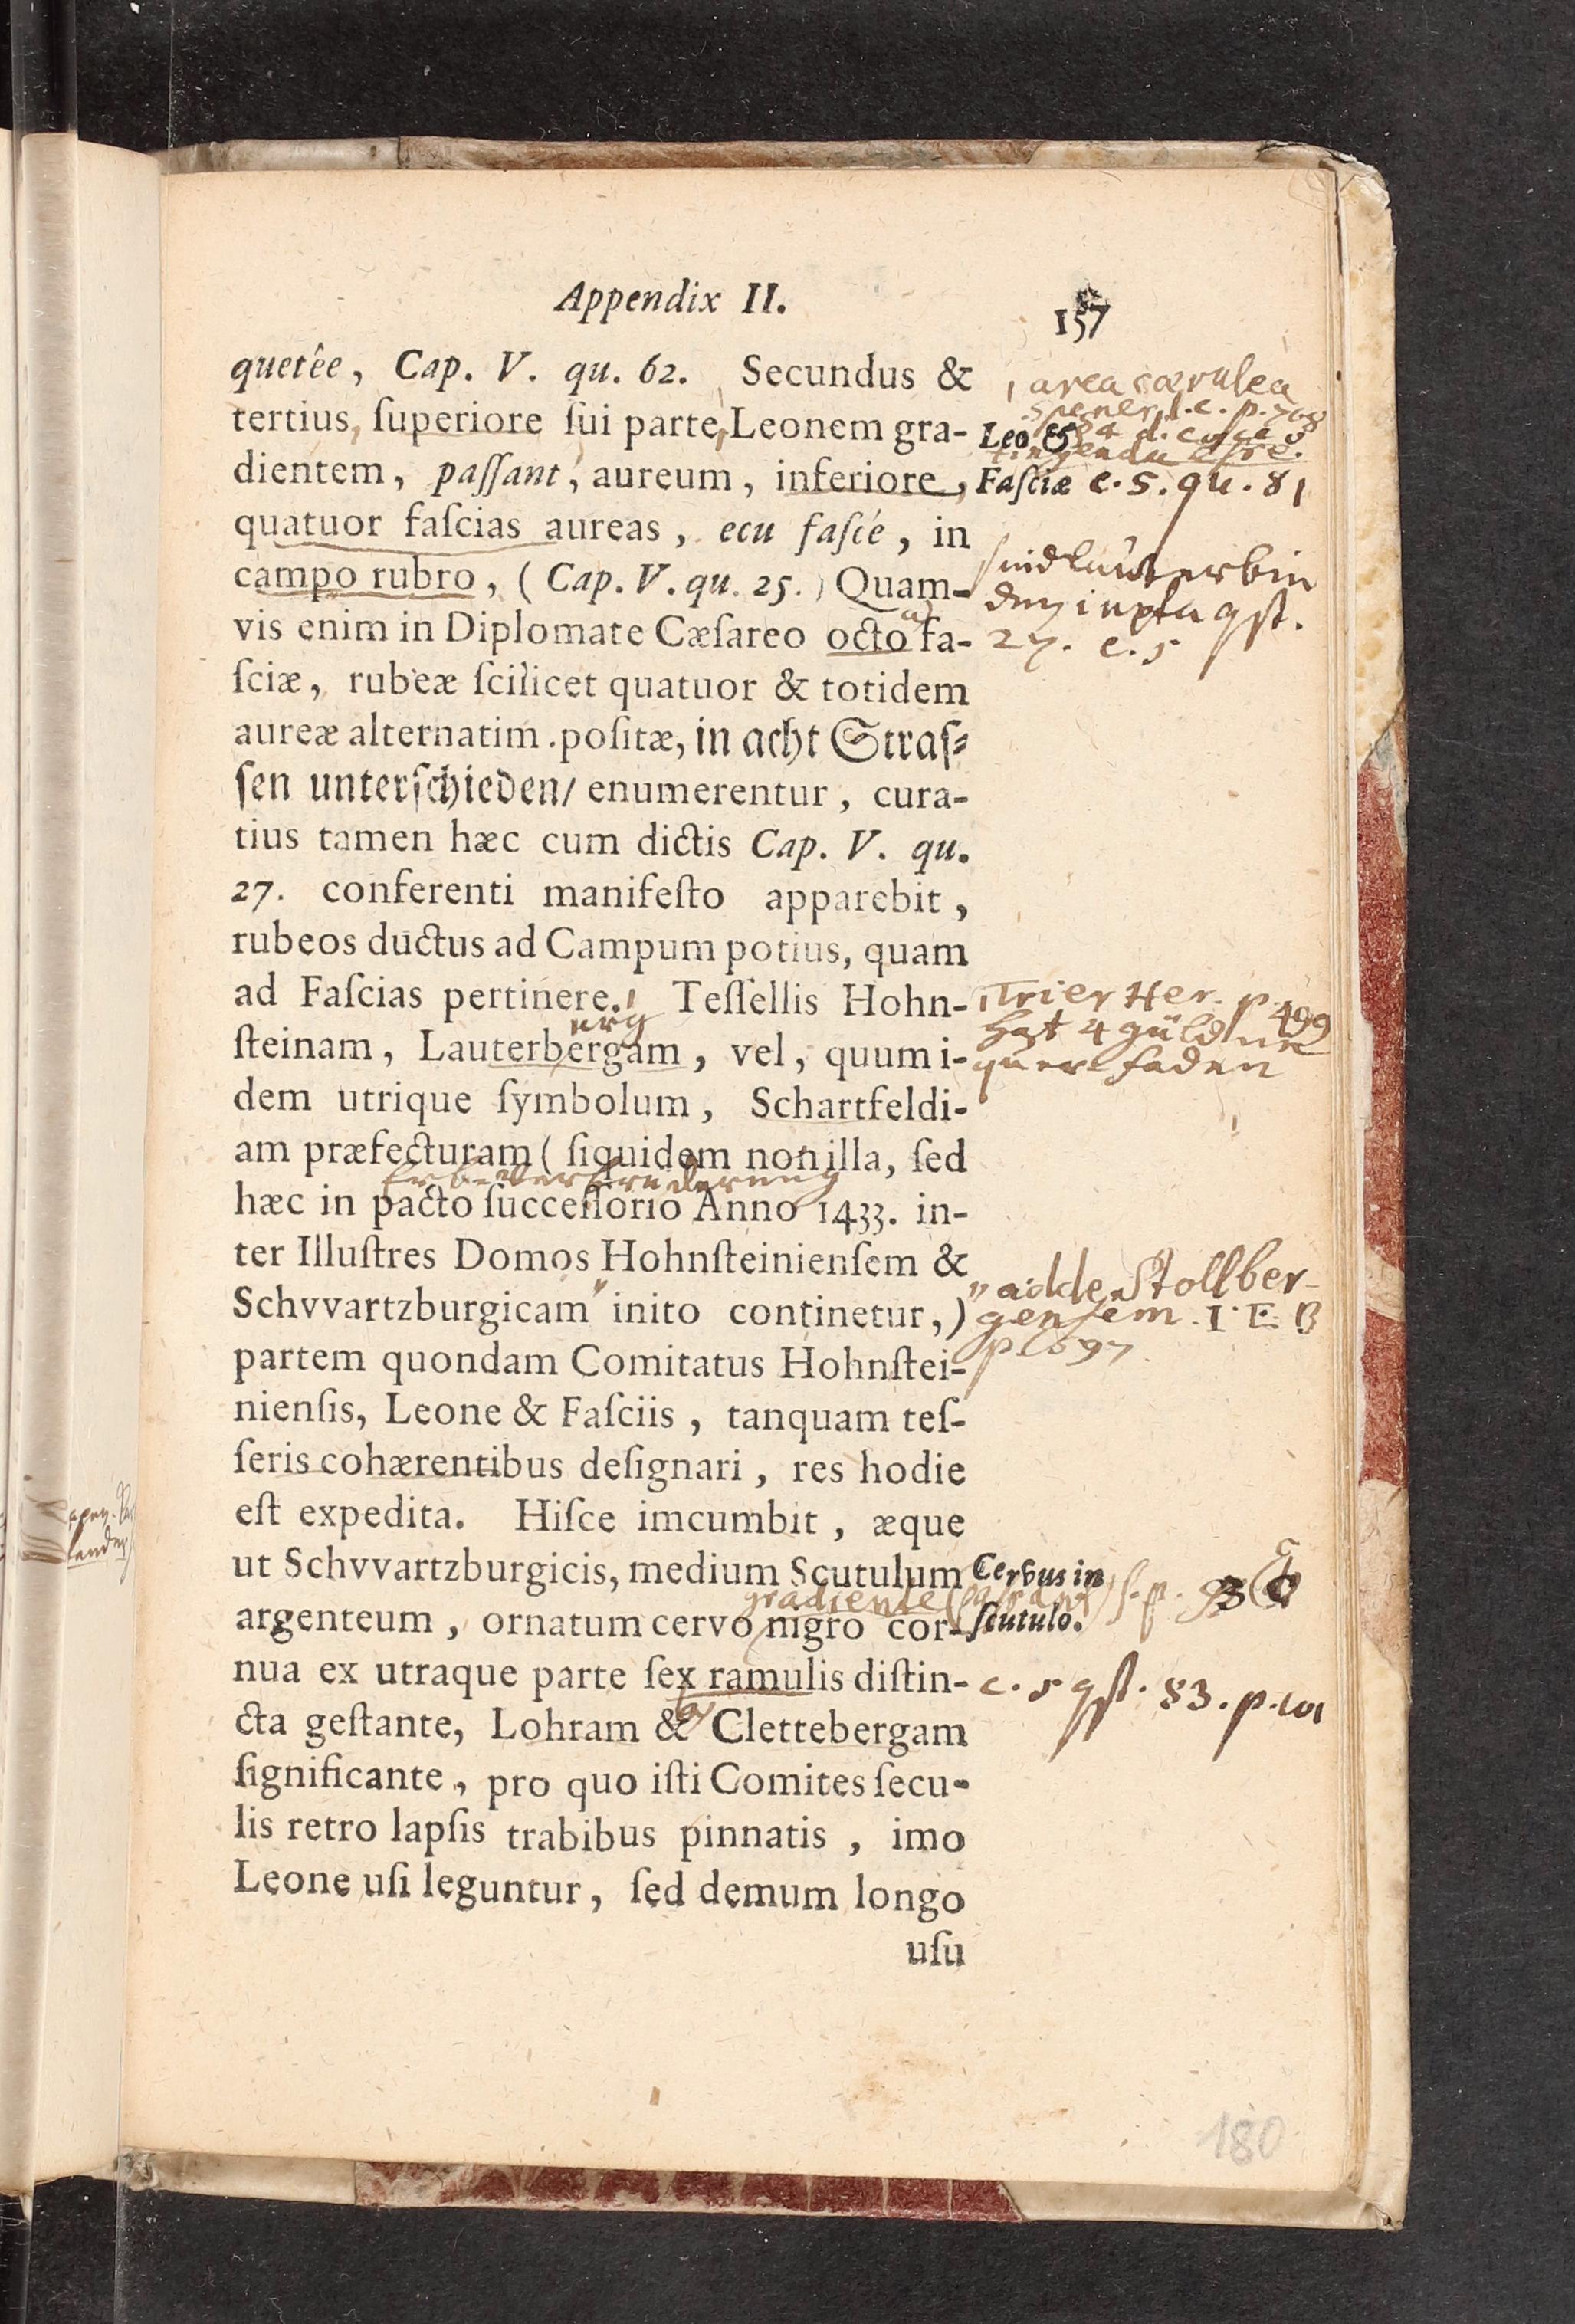 Appendix II.
157
quetêe, Cap. V. qu. 62. Secundus &
tertius, ſuperiore ſui parte, Leonem gra-
dientem, paſſant, aureum, inferiore,
quatuor faſcias aureas, ecu faſcé, in
campo rubro, (Cap. V. qu. 25.) Quam-
vis enim in Diplomate Cæſareo octo fa-
ſciæ, rubeæ ſcilicet quatuor & totidem
aureæ alternatim poſitæ, in acht Straſ⸗
ſen unterſchieden/ enumerentur, cura-
tius tamen hæc cum dictis Cap. V. qu.
27. conferenti manifeſto apparebit,
rubeos ductus ad Campum potius, quam
ad Faſcias pertinere. Teſſellis Hohn-
erg
ſteinam, Lauterbergam, vel, quum i-
dem utrique ſymbolum, Schartfeldi-
am præfecturam (ſiquidem non illa, ſed
Erbverbruderung
hæc in pacto ſucceſſorio Anno 1433. in-
ter Illuſtres Domos Hohnſteinienſem &
Schvvartzburgicam" inito continetur,)
partem quondam Comitatus Hohnſtei-
nienſis, Leone & Faſciis, tanquam teſ-
ſeris cohærentibus deſignari, res hodie
eſt expedita. Hiſce imcumbit, æque
ut Schvvartzburgicis, medium Scutulum
gradiente (passant)
argenteum, ornatum cervo nigro cor-
nua ex utraque parte ſex ramulis diſtin-
cta geſtante, Lohram & Clettebergam
ſignificante, pro quo iſti Comites ſecu-
lis retro lapſis trabibus pinnatis, imo
Leone uſi leguntur, ſed demum longo
uſu
area cærulea
Spener l.c. p. 708
Leo &
Faſciæ c. 5. qu. 81
27. c. 5
Trier Her. p. 499
hat 4 güldne
quer faden
" adde Stollber-
gensem. I E B
p. 697
Cervus in
ſcutulo.
c. 5 qſt. 83. p. 101
180